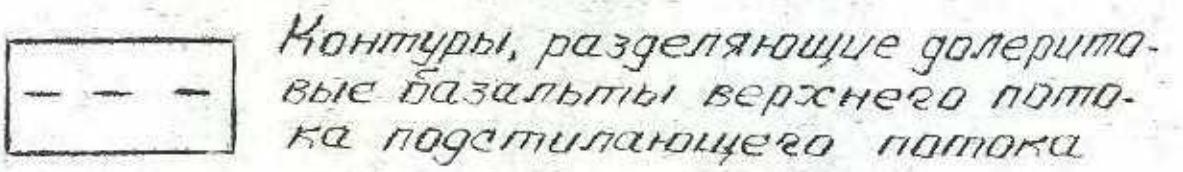 Контуры, разделяющие долерито-
вые базальты верхнего пото-
ка подстилающего потока